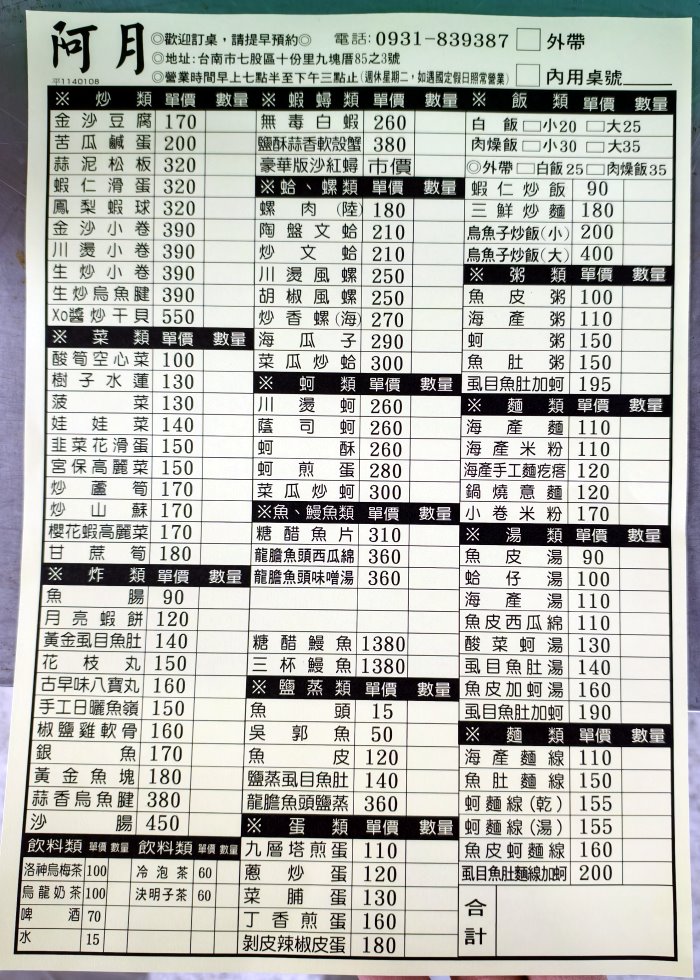 阿月
◎歡迎訂桌，請提早預約◎ 電話:0931-839387 □外帶
◎地址:台南市七股區十份里九塊厝85之3號
◎營業時間早上七點半至下午三點止(週休星期二，如遇國定假日照常營業) □內用桌號
平1140108
※ 炒 類 單價 數量
金沙豆腐 170
苦瓜鹹蛋 200
蒜泥松板 320
蝦仁滑蛋 320
鳳梨蝦球 320
金沙小卷 390
川燙小卷 390
生炒小卷 390
生炒烏魚腱 390
Xo醬炒干貝 550
※ 菜 類 單價 數量
酸筍空心菜 100
樹子水蓮 130
菠菜 130
娃娃菜 140
韭菜花滑蛋 150
宮保高麗菜 150
炒蘆筍 170
炒山蘇 170
櫻花蝦高麗菜 170
甘蔗筍 180
※ 炸 類 單價 數量
魚腸 90
月亮蝦餅 120
黃金虱目魚肚 140
花枝丸 150
古早味八寶丸 160
手工日曬魚嶺 150
椒鹽雞軟骨 160
銀魚 170
黃金魚塊 180
蒜香烏魚腱 380
沙腸 450
飲料類 單價 數量 飲料類 單價 數量
洛神烏梅茶 100 冷泡茶 60
烏龍奶茶 100 決明子茶 60
啤酒 70
水 15
※ 蝦蟳類 單價 數量
無毒白蝦 260
鹽酥蒜香軟殼蟹 380
豪華版沙紅蟳 市價
※ 蛤、螺類 單價 數量
螺肉(陸) 180
陶盤文蛤 210
炒文蛤 210
川燙風螺 250
胡椒風螺 250
炒香螺(海) 270
海瓜子 290
菜瓜炒蛤 300
※ 蚵 類 單價 數量
川燙蚵 260
蔭司蚵 260
蚵酥 260
蚵煎蛋 280
菜瓜炒蚵 300
※魚、鰻魚類 單價 數量
糖醋魚片 310
龍膽魚頭西瓜綿 360
龍膽魚頭味噌湯 360
糖醋鰻魚 1380
三杯鰻魚 1380
※ 鹽蒸類 單價 數量
魚頭 15
吳郭魚 50
魚皮 120
鹽蒸虱目魚肚 140
龍膽魚頭鹽蒸 360
※ 蛋 類 單價 數量
九層塔煎蛋 110
蔥炒蛋 120
菜脯蛋 130
丁香煎蛋 160
剝皮辣椒皮蛋 180
※ 飯 類 單價 數量
白飯 □小20 □大25
肉燥飯 □小30 □大35
◎外帶 □白飯25 □肉燥飯35
蝦仁炒飯 90
三鮮炒麵 180
烏魚子炒飯(小) 200
烏魚子炒飯(大) 400
※ 粥 類 單價 數量
魚皮粥 100
海產粥 110
蚵粥 150
魚肚粥 150
虱目魚肚加蚵 195
※ 麵 類 單價 數量
海產麵 110
海產米粉 110
海產手工麵疙瘩 120
鍋燒意麵 120
小卷米粉 170
※ 湯 類 單價 數量
魚皮湯 90
蛤仔湯 100
海產湯 110
魚皮西瓜綿 110
酸菜蚵湯 130
虱目魚肚湯 140
魚皮加蚵湯 160
虱目魚肚加蚵 190
※ 麵 類 單價 數量
海產麵線 110
魚肚麵線 150
蚵麵線(乾) 155
蚵麵線(湯) 155
魚皮蚵麵線 160
虱目魚肚麵線加蚵 200
合計